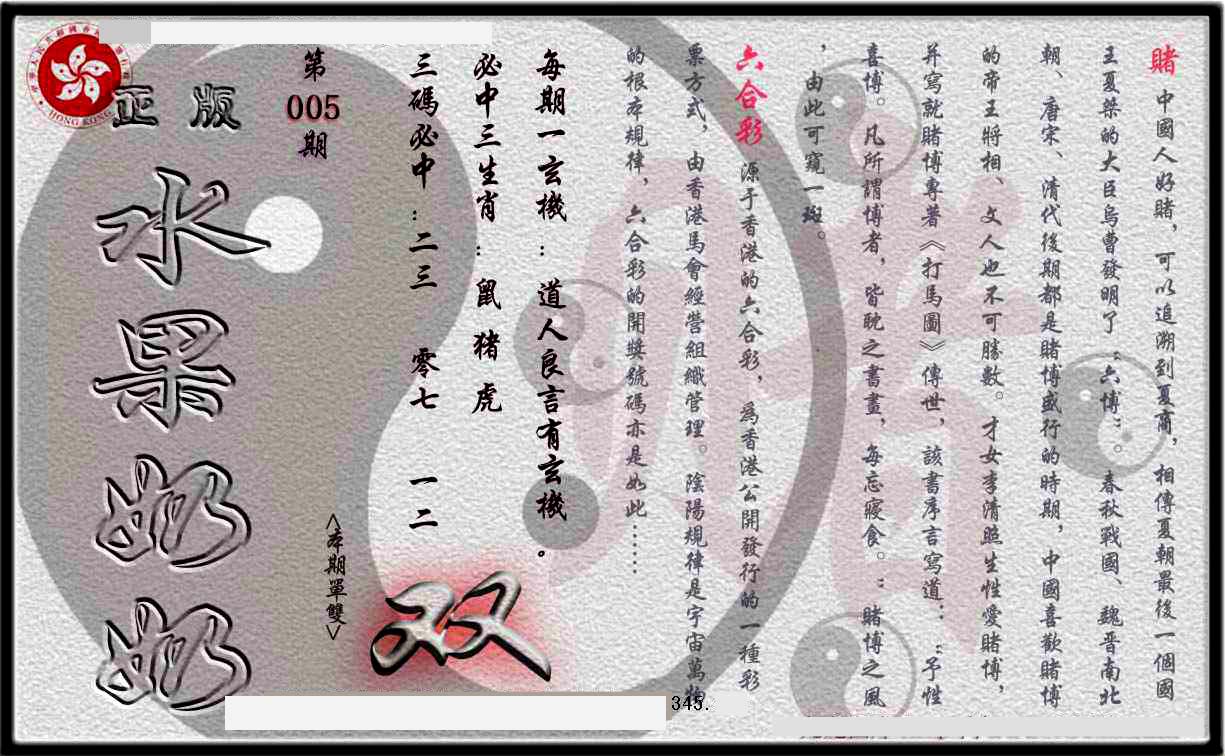 賭 中國人好賭，可以追溯到夏商，相傳夏朝最後一個國
王夏桀的大臣烏曹發明了“六博”。春秋戰國、魏晋南北
朝、唐宋、清代後期都是賭博盛行的時期，中國喜歡賭博
的帝王將相、文人也不可勝數。才女李清照生性愛賭博，
并寫就賭博專著《打馬圖》傳世，該書序言寫道：“予性
喜博。凡所謂博者，皆耽之書畫，每忘寢食。”賭博之風
，由此可窺一斑。
六合彩 源于香港的六合彩，爲香港公開發行的一種彩
票方式，由香港馬會經營組織管理。陰陽規律是宇宙萬物
的根本規律，六合彩的開獎號碼亦是如此……
每期一玄機：道人良言有玄機。
必中三生肖：鼠 猪 虎
三碼必中：二三 零七 一二
<本期單雙>
双
第
005
期
正版
水果奶奶
HONG KONG
345.